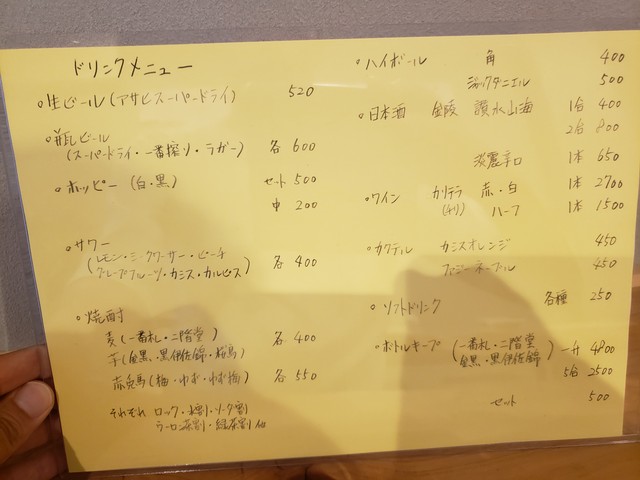 ドリンクメニュー
○生ビール(アサヒスーパードライ) 520
○瓶ビール
(スーパードライ・一番搾り・ラガー) 各 600
○ホッピー (白・黒) セット 500
中 200
○サワー
(レモン・シークワーサー・ピーチ
グレープフルーツ・カシス・カルピス) 各 400
○焼酎
麦(一番札・二階堂) 各 400
芋(金黒・黒伊佐錦・桜島)
赤兎馬(梅・ゆず・ゆず梅) 各 550
それぞれ ロック・水割・ソーダ割
ウーロン茶割・緑茶割 他
○ハイボール 角 400
ジャックダニエル 500
○日本酒 金陵 讃水山海 1合 400
2合 800
淡麗辛口 1本 650
○ワイン カリテラ 赤・白 1本 2700
(チリ) ハーフ 1本 1500
○カクテル カシスオレンジ 450
ファジーネーブル 450
○ソフトドリンク 各種 250
○ボトルキープ (一番札・二階堂 一升 4800
金黒・黒伊佐錦) 5合 2500
セット 500